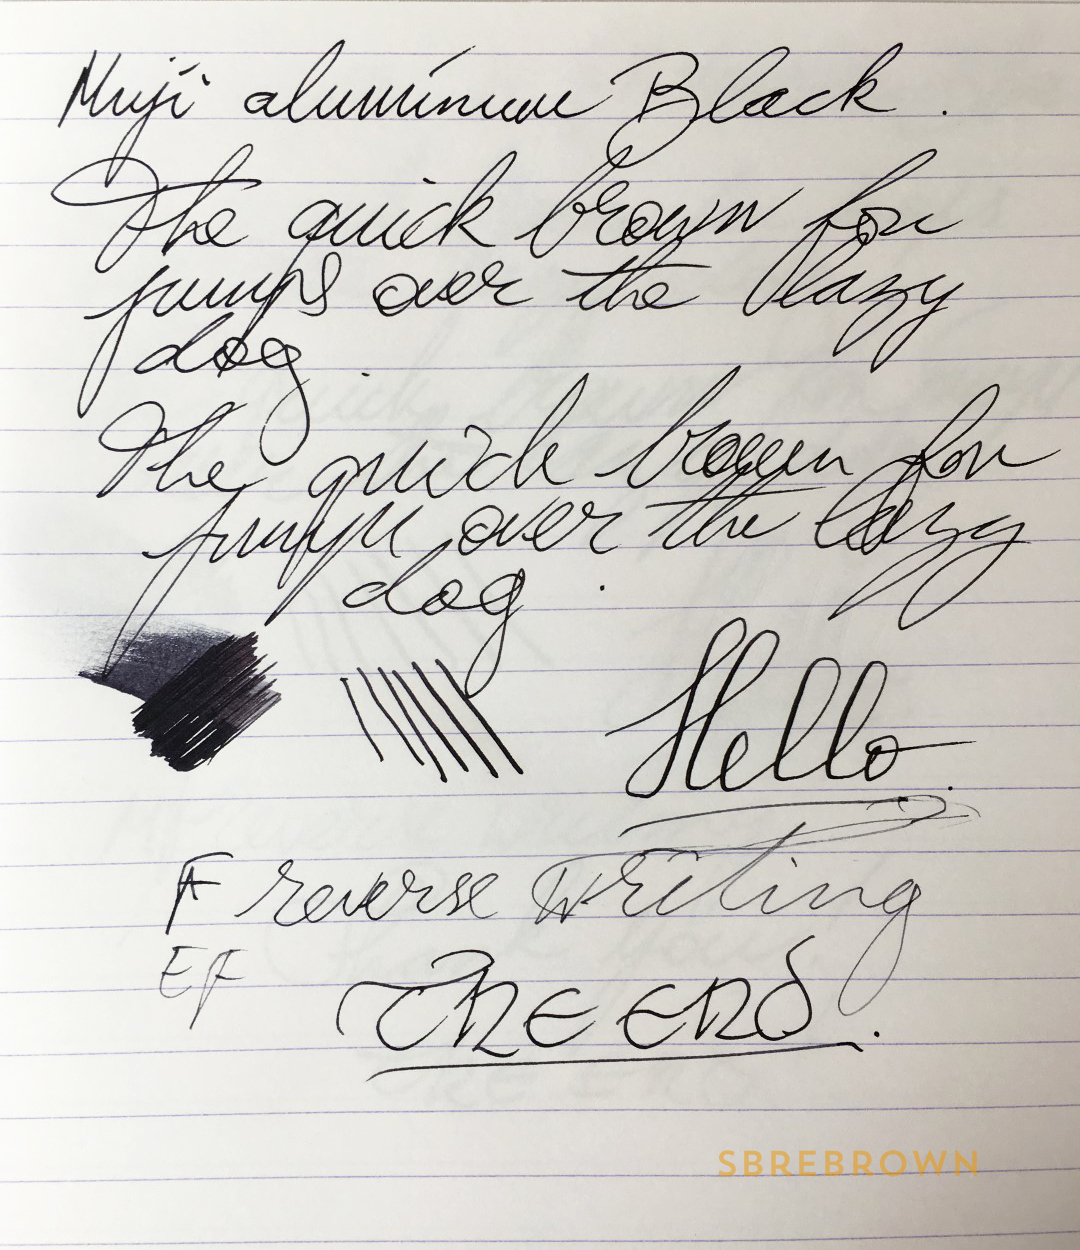 Muji aluminum Black.
The quick brown fox
jumps over the lazy
dog.
The quick brown fox
jumps over the lazy
dog.
Hello.
F reverse writing
EF
THE END.
SBREBROWN